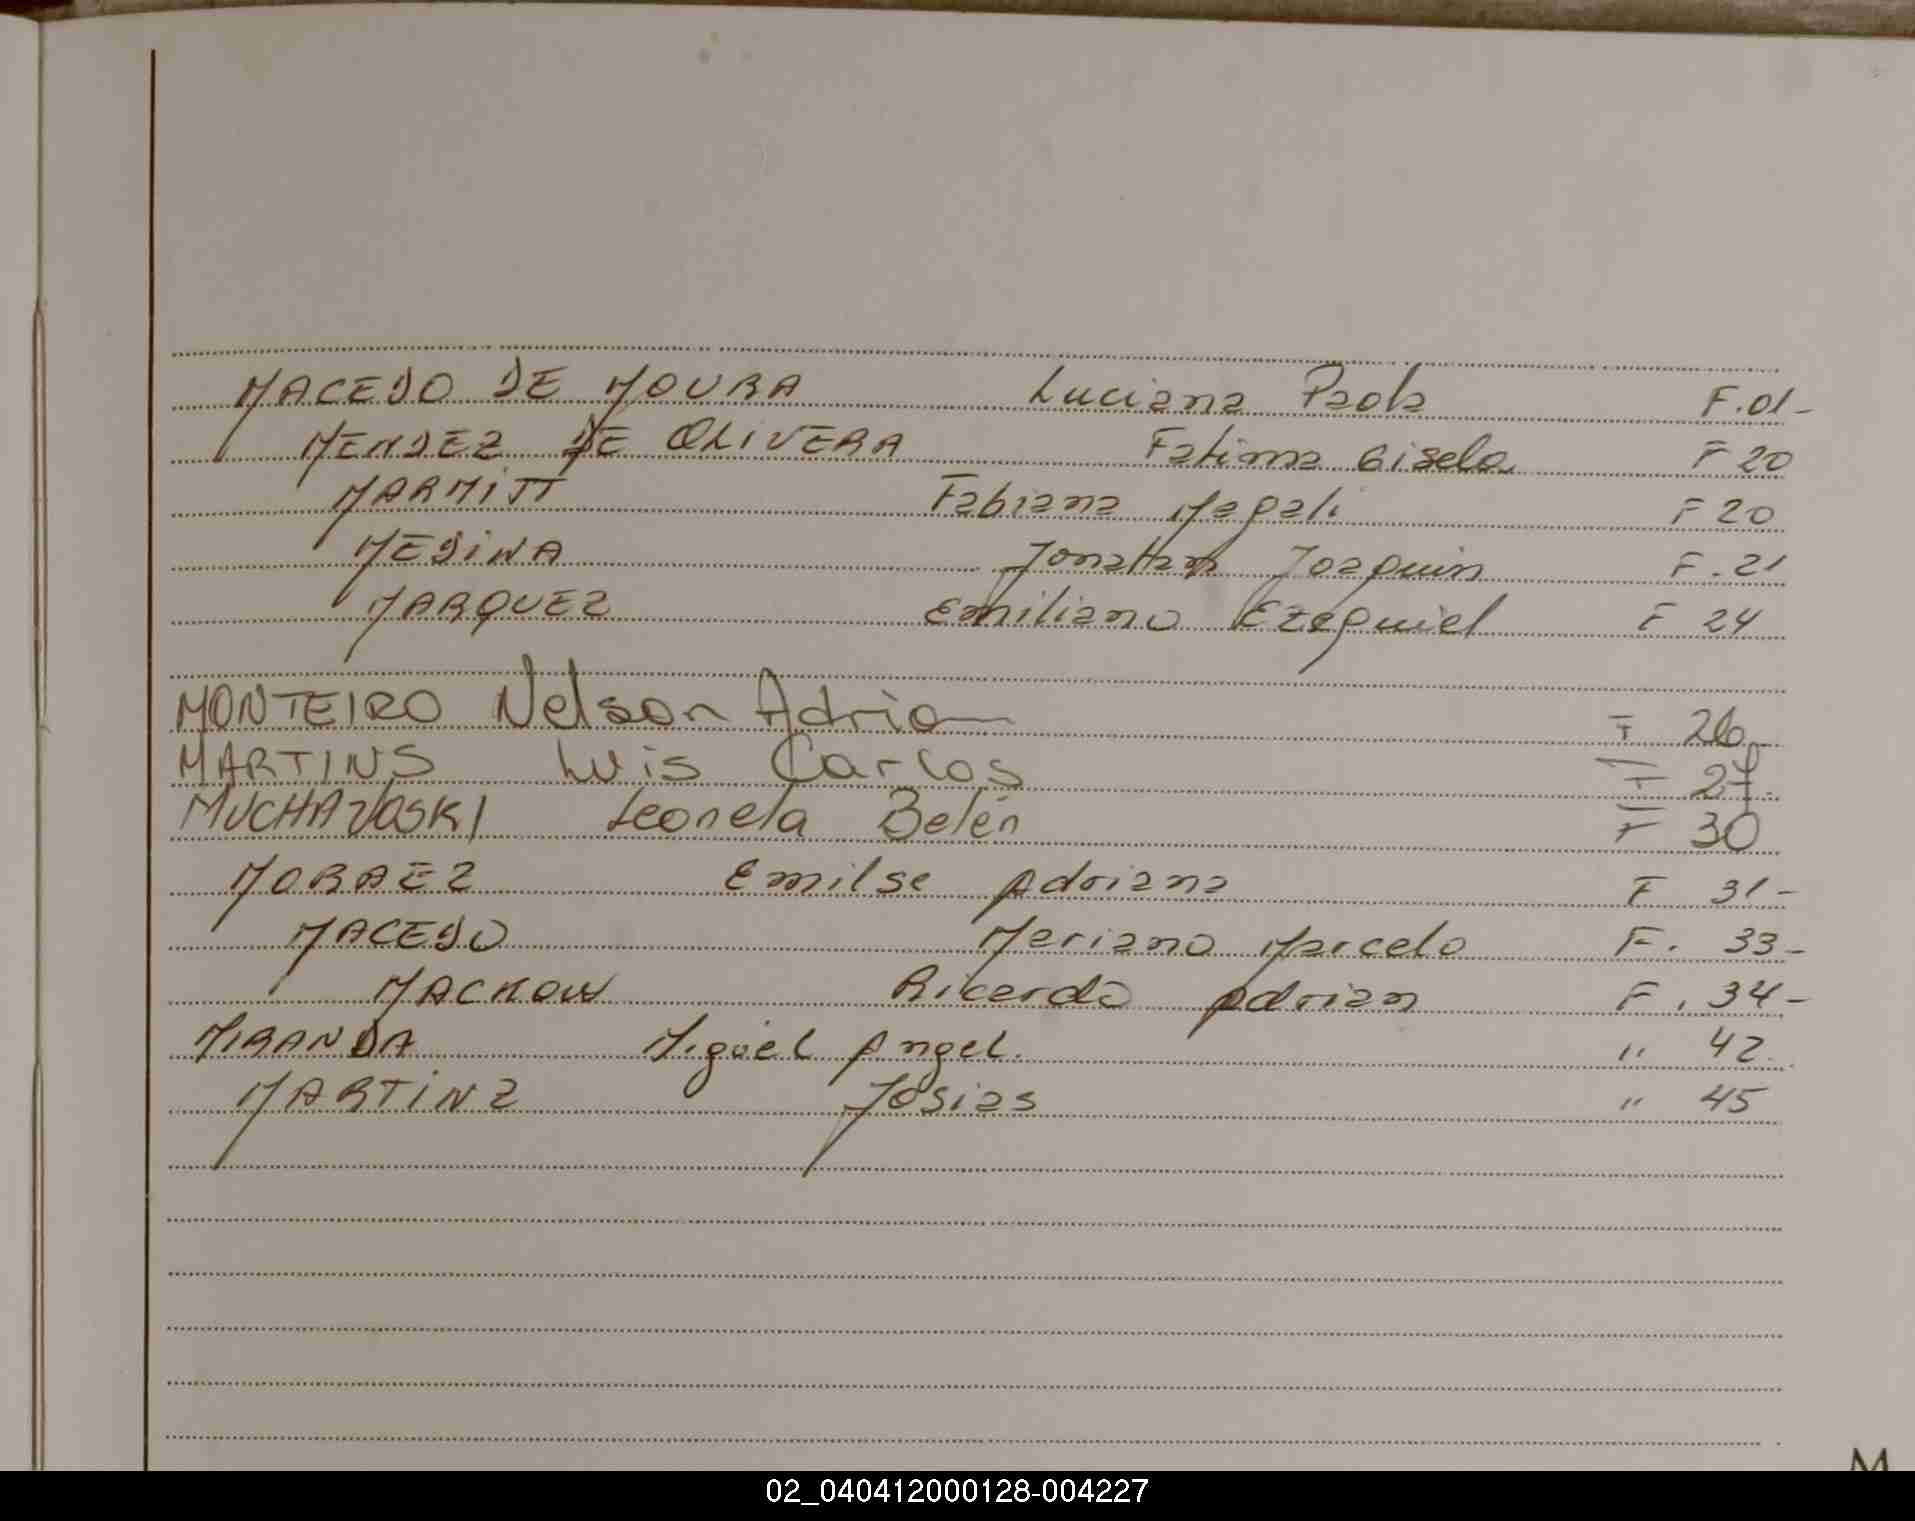 MACEDO DE MOURA Luciana Paola F.01-
MENDEZ DE OLIVERA Fatima Gisela F 20
MARMITT Fabiana Magali F 20
MEDINA Jonatan Joaquin F.21
MARQUEZ Emiliano Ezequiel F 24
MONTEIRO Nelson Adrian F 26-
MARTINS Luis Carlos F 27.
MUCHAVOSKI Leonela Belén F 30
MORAEZ Emilse Adriana F 31-
MACEDO Meriano Marcelo F. 33-
MACKOW Ricardo Adrian F. 34-
MIRANDA Miguel Angel. " 42.
MARTINZ Josias " 45
M
02_040412000128-004227